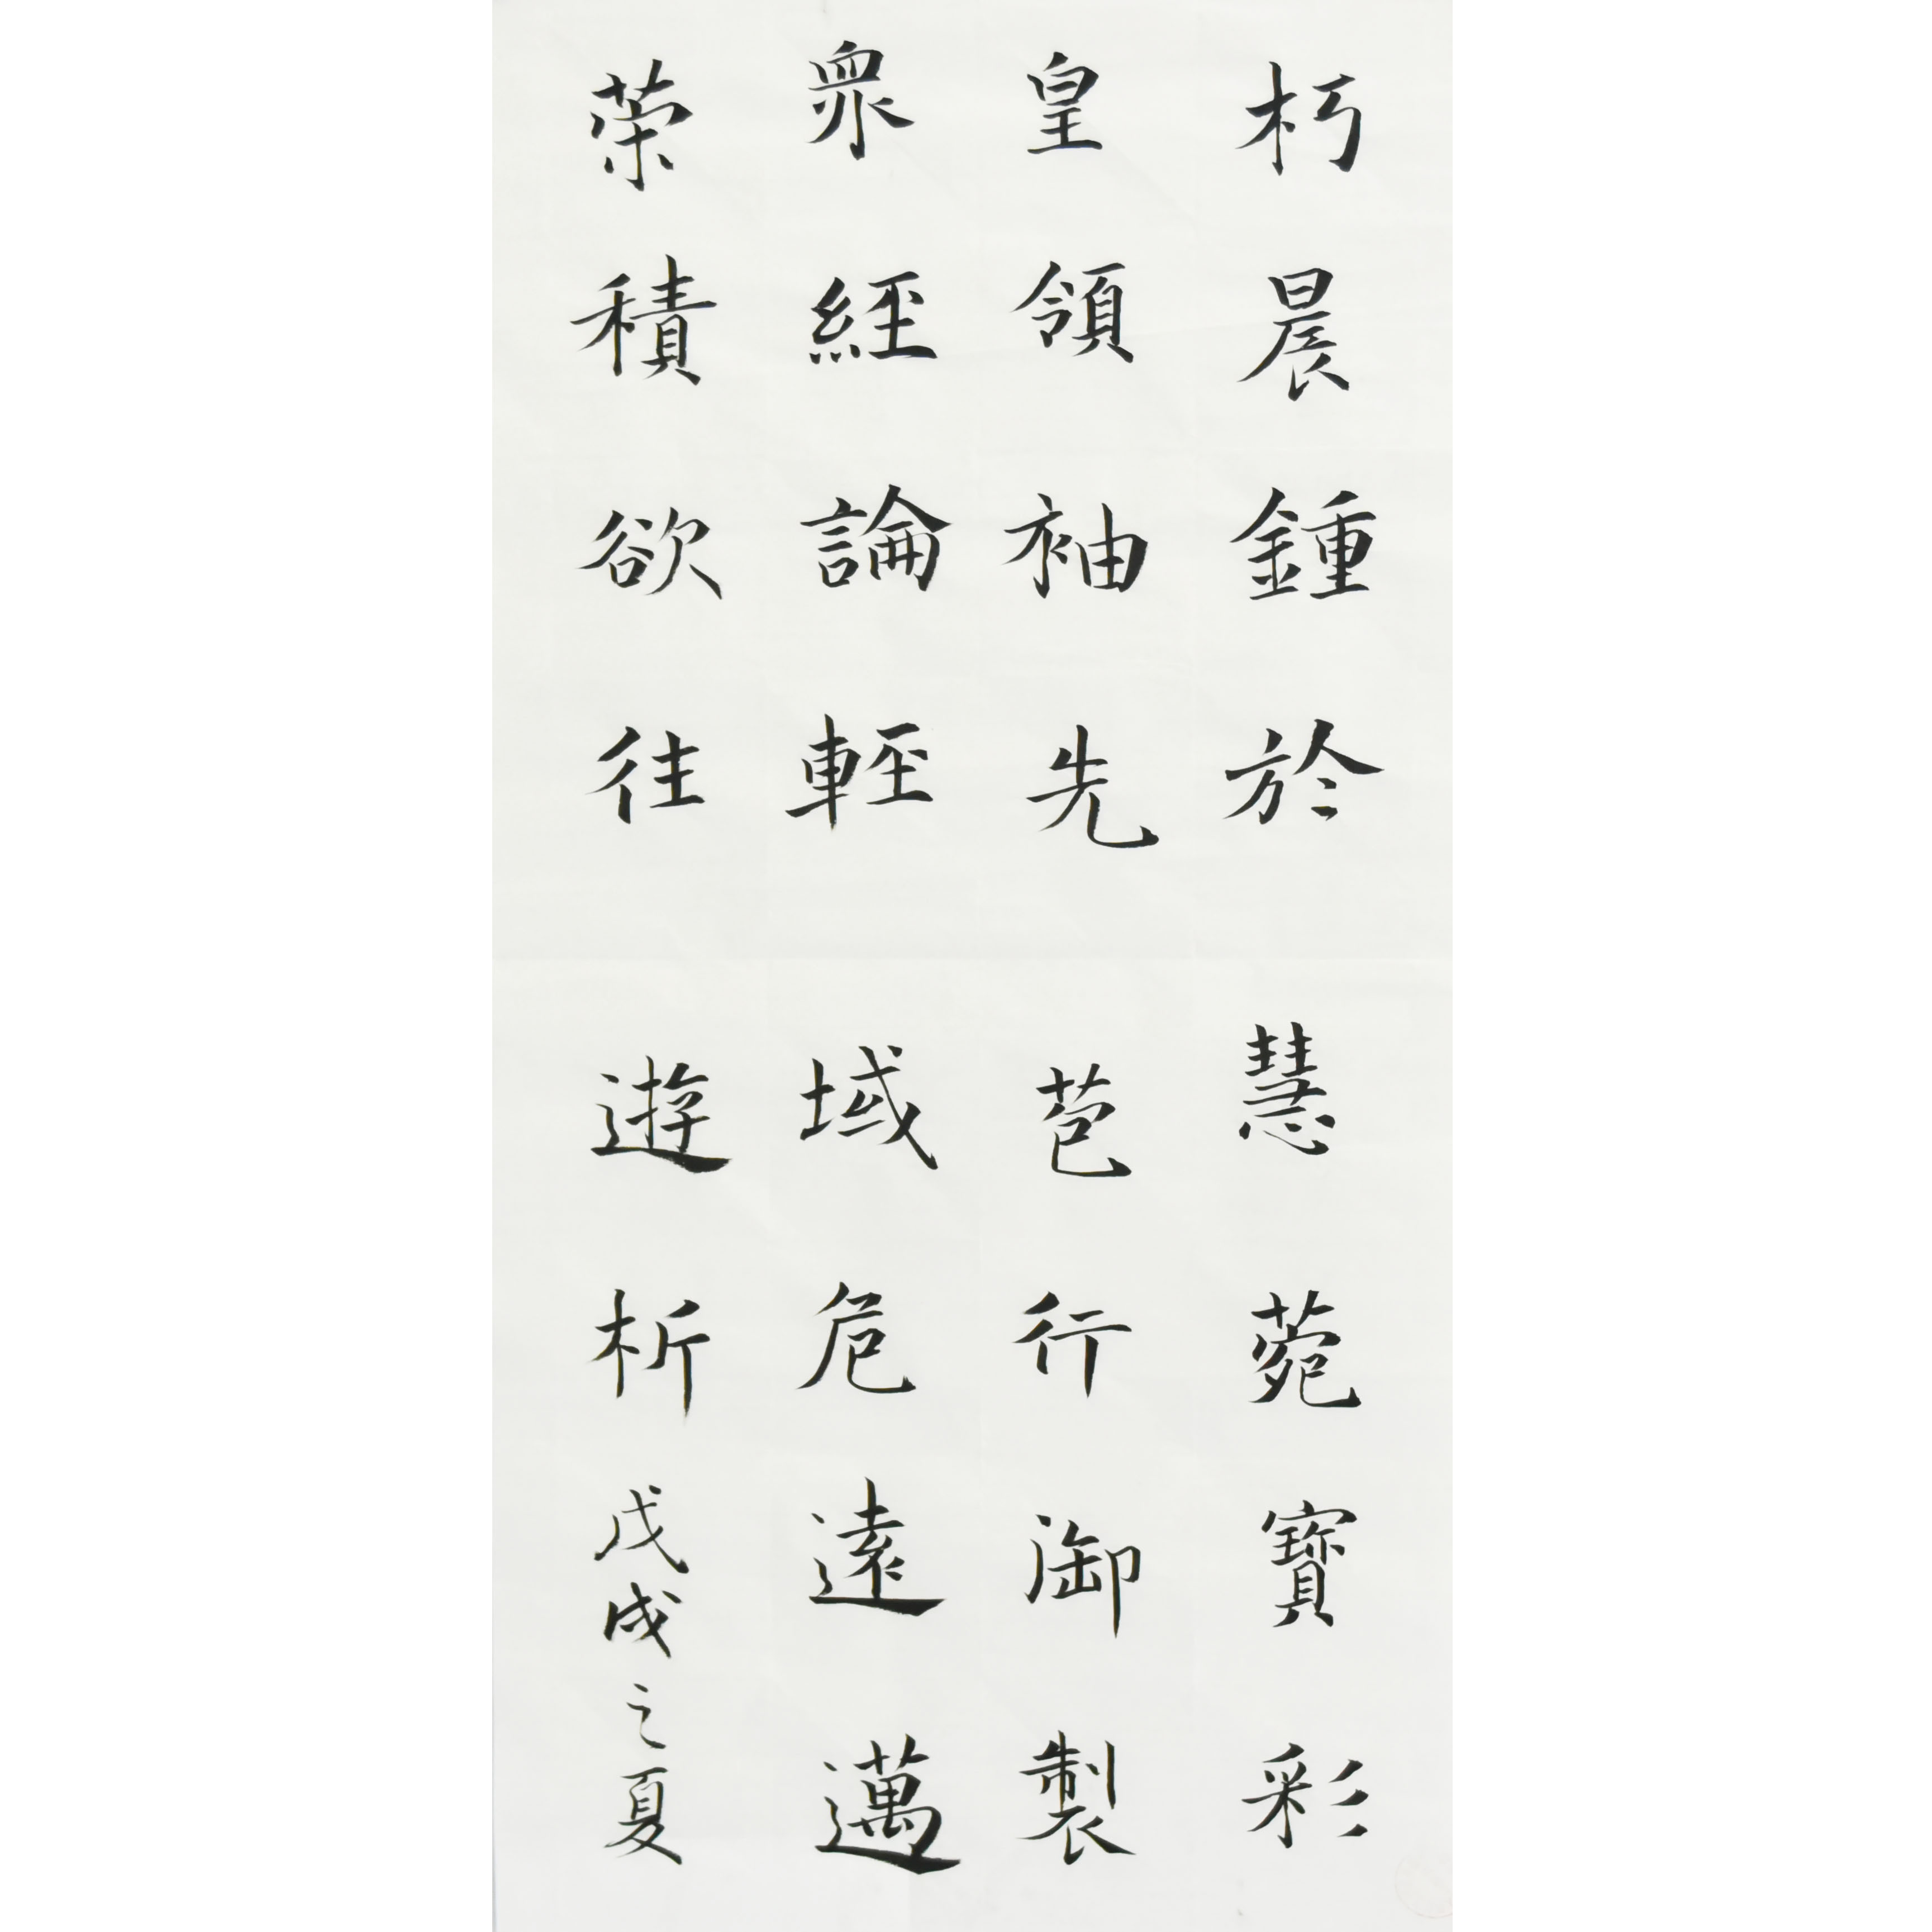 朽晨鍾於慧菀寶彩
皇領袖先苞行御製
眾經論輕域危遠邁
荣積欲往遊析戊戌之夏